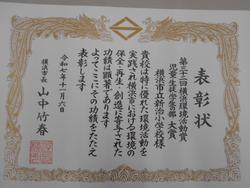 表彰状
第三十二回横浜環境活動賞
児童・生徒・学生の部 大賞
横浜市立新治小学校様
貴校は特に優れた環境活動を
実践され横浜市における環境の
保全・再生・創造に寄与された
功績は顕著であります
よってここにその功績をたたえ
表彰します
令和七年十一月六日
横浜市長 山中竹春